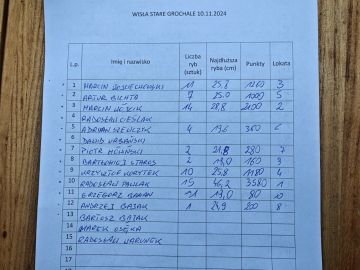 WISŁA STARE GROCHALE 10.11.2024
L.p. Imię i nazwisko Liczba ryb (sztuk) Najdłuższa ryba (cm) Punkty Lokata
1 MARCIN WOJCIECHOWSKI 11 25,8 1260 3
2 ARTUR BICHTA 7 25,0 1000 5
3 MARCIN WÓJCIK 14 28,8 2100 2
4 RADOSŁAW CIEŚLAK
5 ADRIAN SZEWCZYK 4 19,6 360 6
6 DAWID URBAŃSKI
7 PIOTR 2 21,8 280 7
8 BARTŁOMIEJ STAROS 2 19,0 160
9 KRZYSZTOF KORYTEK 10 25,8 1180 4
10 RADOSŁAW PAWLAK 15 46,2 3580 1
11 GRZEGORZ BABAN 1 19,0 80
12 ANDRZEJ BAJAK 1 24,9 200 8
13 BARTOSZ BAJAK
14 MAREK OSĘKA
15 RADOSŁAW